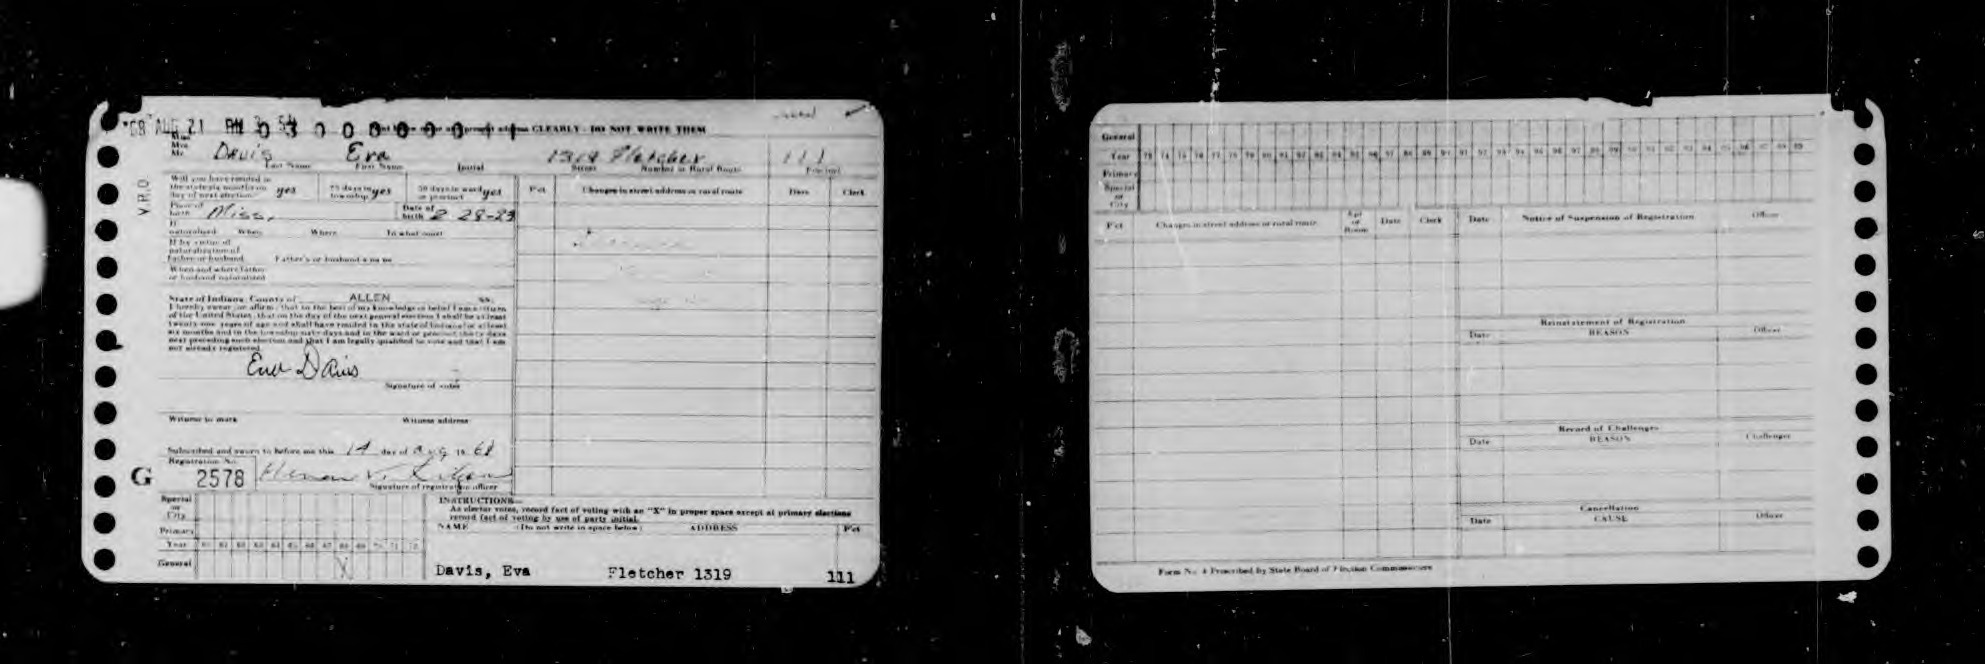 '68 AUG 21 PM 3 54
03000000011
CLEARLY - DO NOT WRITE THEM
Miss
Mrs
Mr. Davis Eva 1319 Fletcher 111
Last Name First Name Initial Street Number or Rural Route Precinct
V.R.O
Will you have resided in
the state six months on
day of next election yes
yes
yes
Pct Changes in street address or rural route Date Clerk
Place of
birth Miss. Date of
birth 2 28-23
If
naturalized When Where In what court
If by virtue of
naturalization of
Father or husband Father's or husband's name
When and where father
or husband naturalized
State of Indiana, County of ALLEN ss.
I hereby swear (or affirm) that to the best of my knowledge or belief I am a citizen
of the United States; that on the day of the next general election I shall be at least
twenty-one years of age and shall have resided in the state of Indiana for at least
six months and in the township sixty days and in the ward or precinct thirty days
next preceding such election and that I am legally qualified to vote and that I am
not already registered.
Eva Davis
Signature of voter
Witness to mark Witness address
Subscribed and sworn to before me this 14 day of Aug 19 68
Registration No.
G 2578
Signature of registration officer
Special
or
City
Primary
Year 60 61 62 63 64 65 66 67 68 69 70 71 72
General X
INSTRUCTIONS
As elector votes, record fact of voting with an "X" in proper space except at primary elections
record fact of voting by use of party initial.
NAME (Do not write in space below) ADDRESS Pct
Davis, Eva Fletcher 1319 111
General
Year
Primary
Special
or
City
Pct Changes in street address or rural route Apt
or
Room Date Clerk Date Notice of Suspension of Registration Officer
Reinstatement of Registration
Date REASON Officer
Record of Challenges
Date REASON Challenger
Cancellation
Date CAUSE Officer
Form No. 4 Prescribed by State Board of Election Commissioners